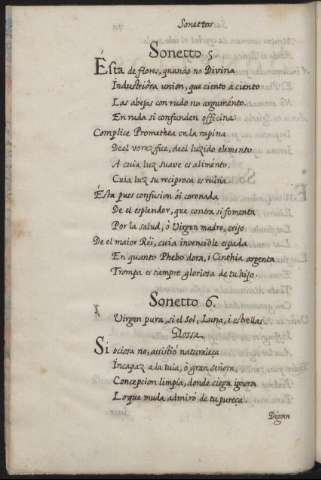 Sonettos
Sonetto 5
Ésta de flores, quando no Divina
Industriosa union, que ciento a ciento
Las abejas con rudo no argumento
En ruda si confunden officina
Complice Prometheo en la rapina
Deel vorez fice, deel luzido elemento
A cuia luz suave es alimento,
Cuia luz su reciproca es ruina
Esta pues confusion oi coronada
De el esplendor, que contra si fomenta
Por la salud, ô Virgen madre, erijo
De el maior Rei, cuia invencible espada
En quanto Phebo dora, i Cinthia argenta
Trompa es siempre gloriosa de tu hijo.
Sonetto 6.
Virgen pura, si el Sol, Luna, i estrellas
Glossa.
Si ociosa no, assistió naturaleza
Incapaz a la tuia, ô gran señora,
Concepcion limpia, donde ciega ignora
Lo que muda admiró de tu pureça.
Digan